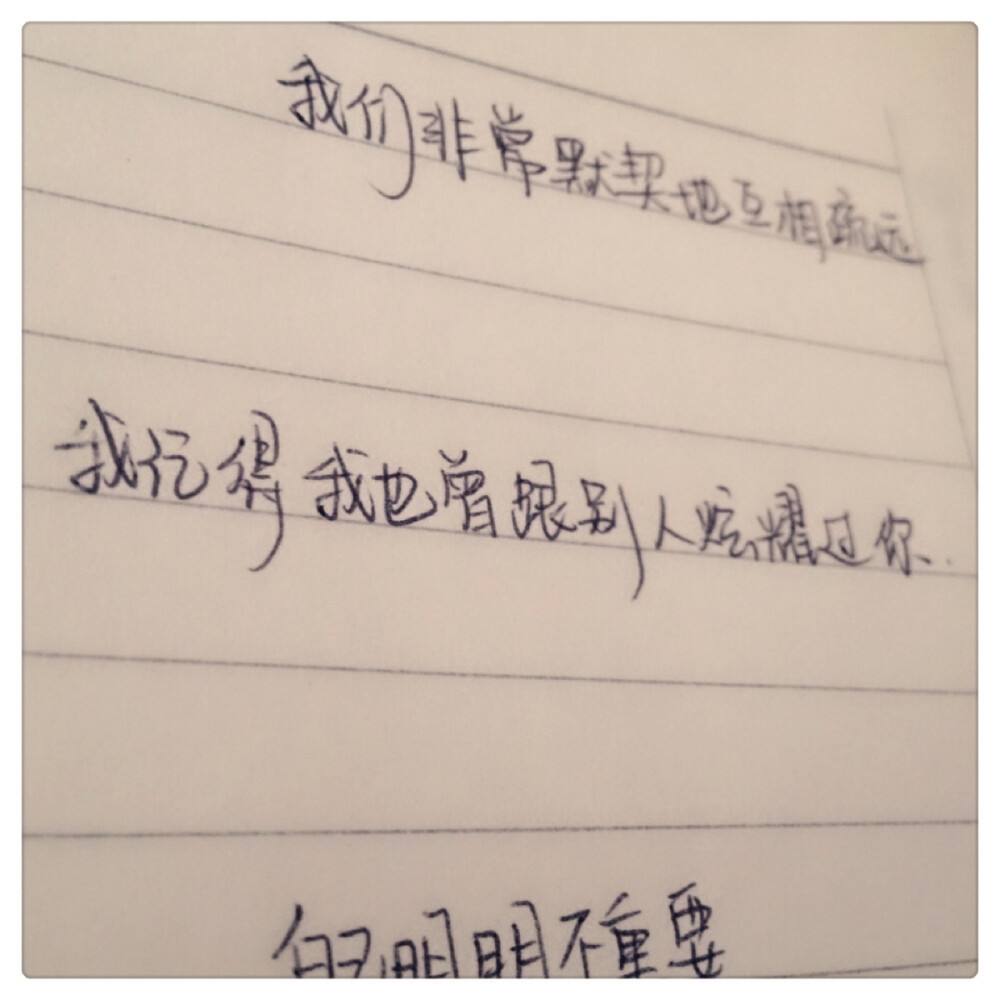 我们非常默契地互相疏远
我记得我也曾跟别人炫耀过你.
但明明不重要